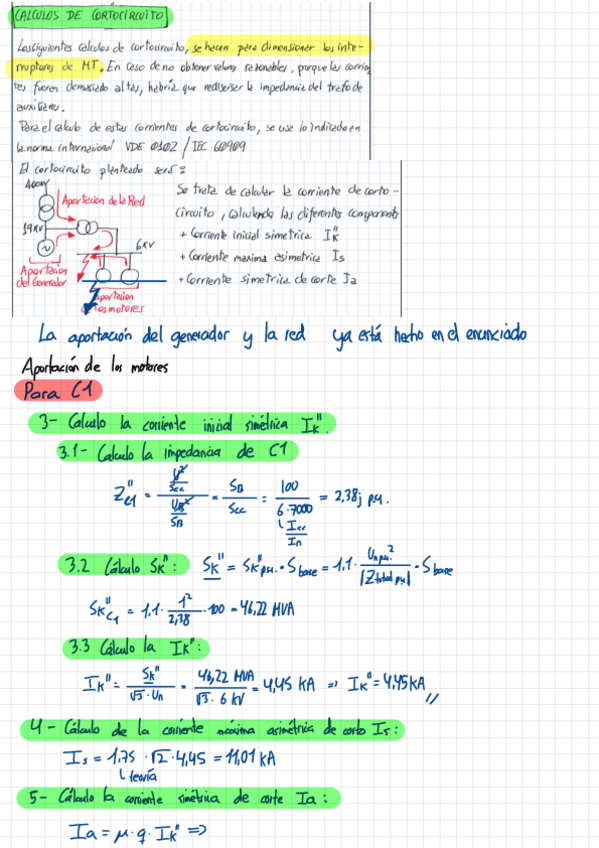 CALCULOS DE CORTOCIRCUITO
Los siguientes calculos de cortocircuito, se hacen para dimensionar los inte-
rruptores de MT. En caso de no obtener valores razonables, porque las corrien
tes fueren demasiado altas, habría que rediseñar la impedancia del trafo de
auxiliares.
Para el calculo de estas corrientes de cortocircuito, se usa lo indicado en
la norma internacional VDE 0102 / IEC 60909
El cortocircuito planteado será:
400kV
Aportación de la Red
19kV
6kV
Aportación
del Generador
Aportacion
de los motores
Se trata de calcular la corriente de corto-
circuito, calculando las diferentes componentes
+ Corriente inicial simetrica Ik"
+ Corriente maxima asimetrica Is
+ Corriente simetrica de corte Ia
La aportación del generador y la red ya está hecho en el enunciado
Aportación de los motores
Para C1
3- Calculo la corriente inicial simétrica Ik".
3.1- Calculo la impedancia de C1
Z"C1 = (U²/Scc)/(UB²/SB) = SB/Scc = 100/(6·7000) = 2,38j pu.
Icc/In
3.2 Cálculo Sk": Sk" = Sk"pu. · Sbase = 1,1 · Un pu.²/|Ztotal pu| · Sbase
Sk"C1 = 1,1 · 1²/2,38 · 100 = 46,22 MVA
3.3 Cálculo la Ik":
Ik" = Sk"/(√3 · Un) = 46,22 MVA/(√3 · 6 kV) = 4,45 kA ⇒ Ik" = 4,45 kA
4- Cálculo de la corriente máxima asimétrica de corto Is:
Is = 1,75 · √2 · 4,45 = 11,01 kA
teoría
5- Cálculo la corriente simétrica de corte Ia:
Ia = μ · q · Ik" ⇒